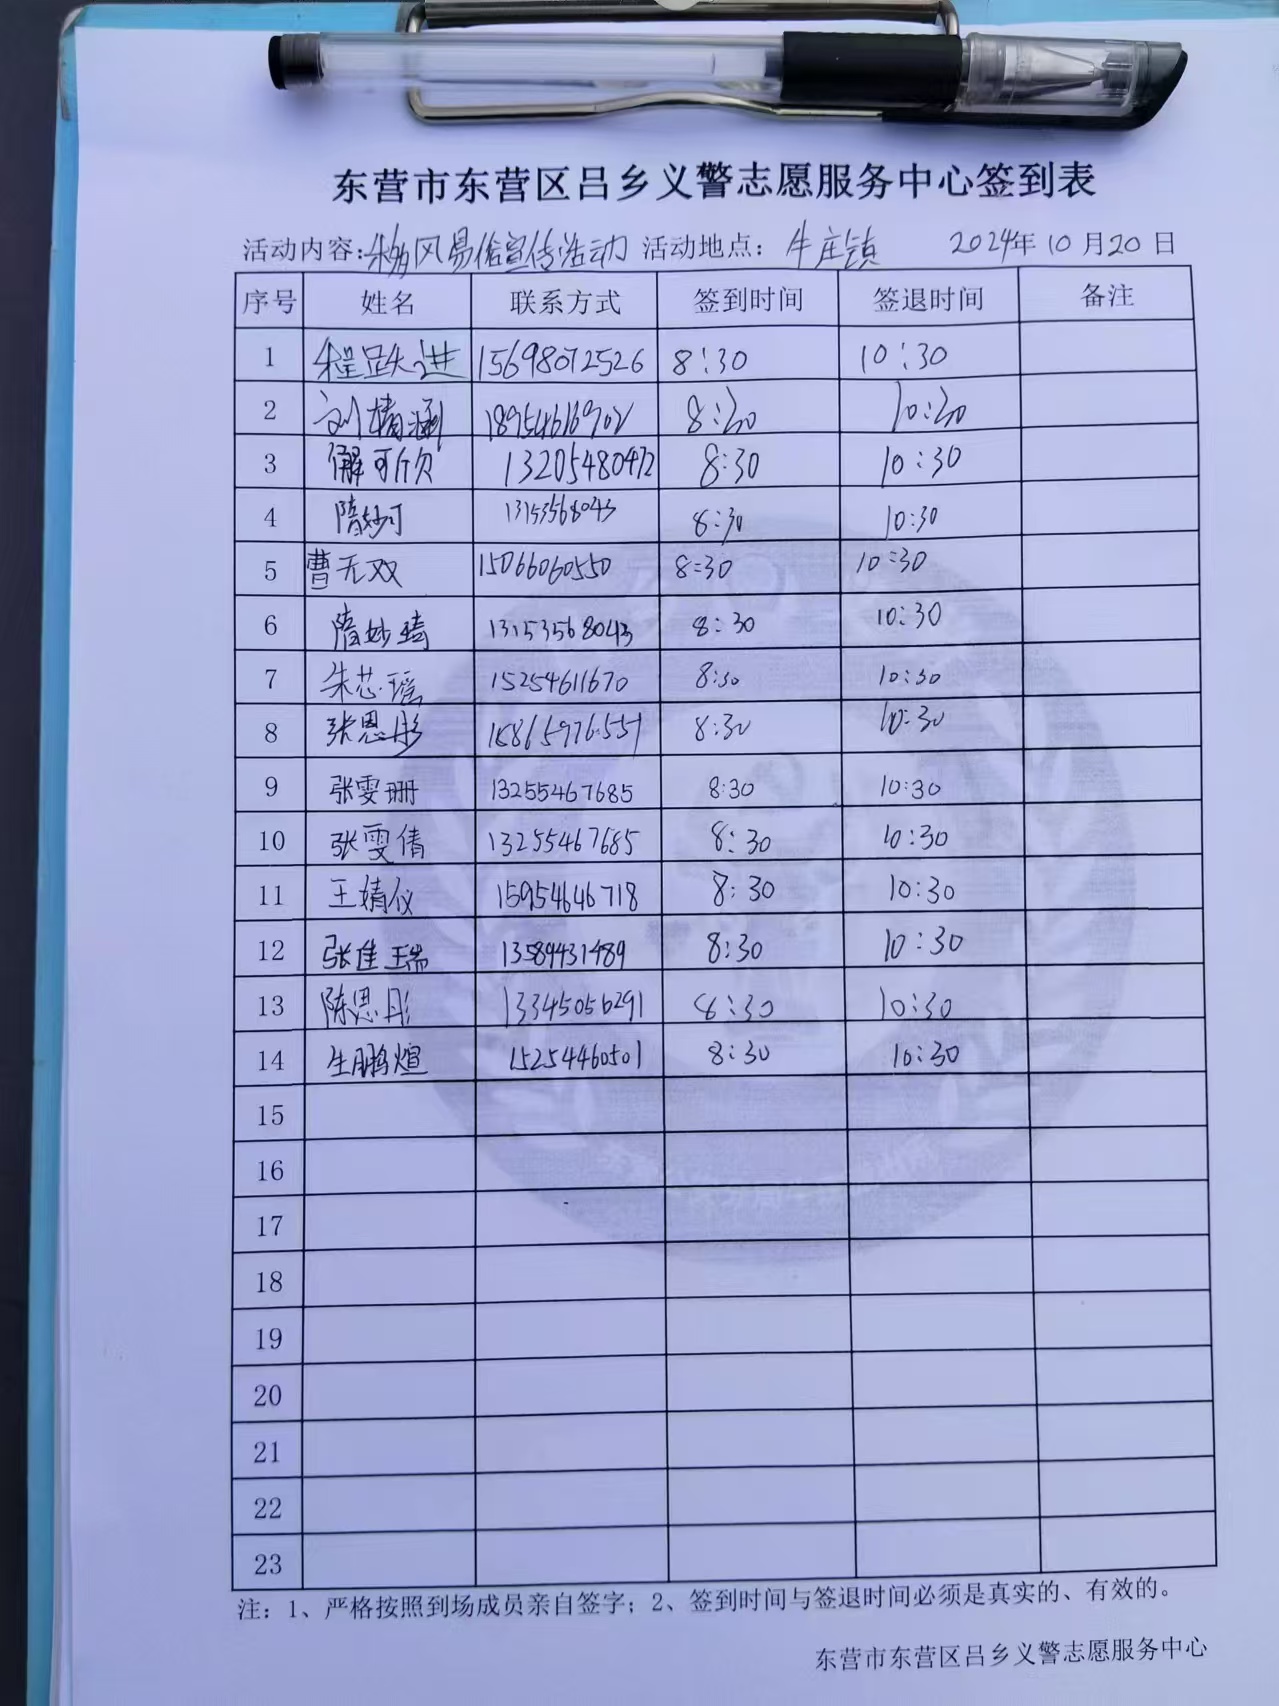 东营市东营区吕乡义警志愿服务中心签到表
活动内容:移风易俗宣传活动 活动地点: 牛庄镇 2024年10月20日
序号 姓名 联系方式 签到时间 签退时间 备注
1 程跃进 15698072526 8:30 10:30
2 刘婧涵 18954616902 8:30 10:30
3 解可欣 13205480472 8:30 10:30
4 隋妙可 13153568043 8:30 10:30
5 曹无双 15066060550 8:30 10:30
6 隋妙琦 13153568043 8:30 10:30
7 朱芯瑶 15254611670 8:30 10:30
8 张恩彤 15865976551 8:30 10:30
9 张雯珊 13255467685 8:30 10:30
10 张雯倩 13255467685 8:30 10:30
11 王婧仪 15954646718 8:30 10:30
12 张佳瑞 13589431489 8:30 10:30
13 陈思彤 13345056291 8:30 10:30
14 生鹏煊 15254460501 8:30 10:30
15
16
17
18
19
20
21
22
23
注:1、严格按照到场成员亲自签字;2、签到时间与签退时间必须是真实的、有效的。
东营市东营区吕乡义警志愿服务中心